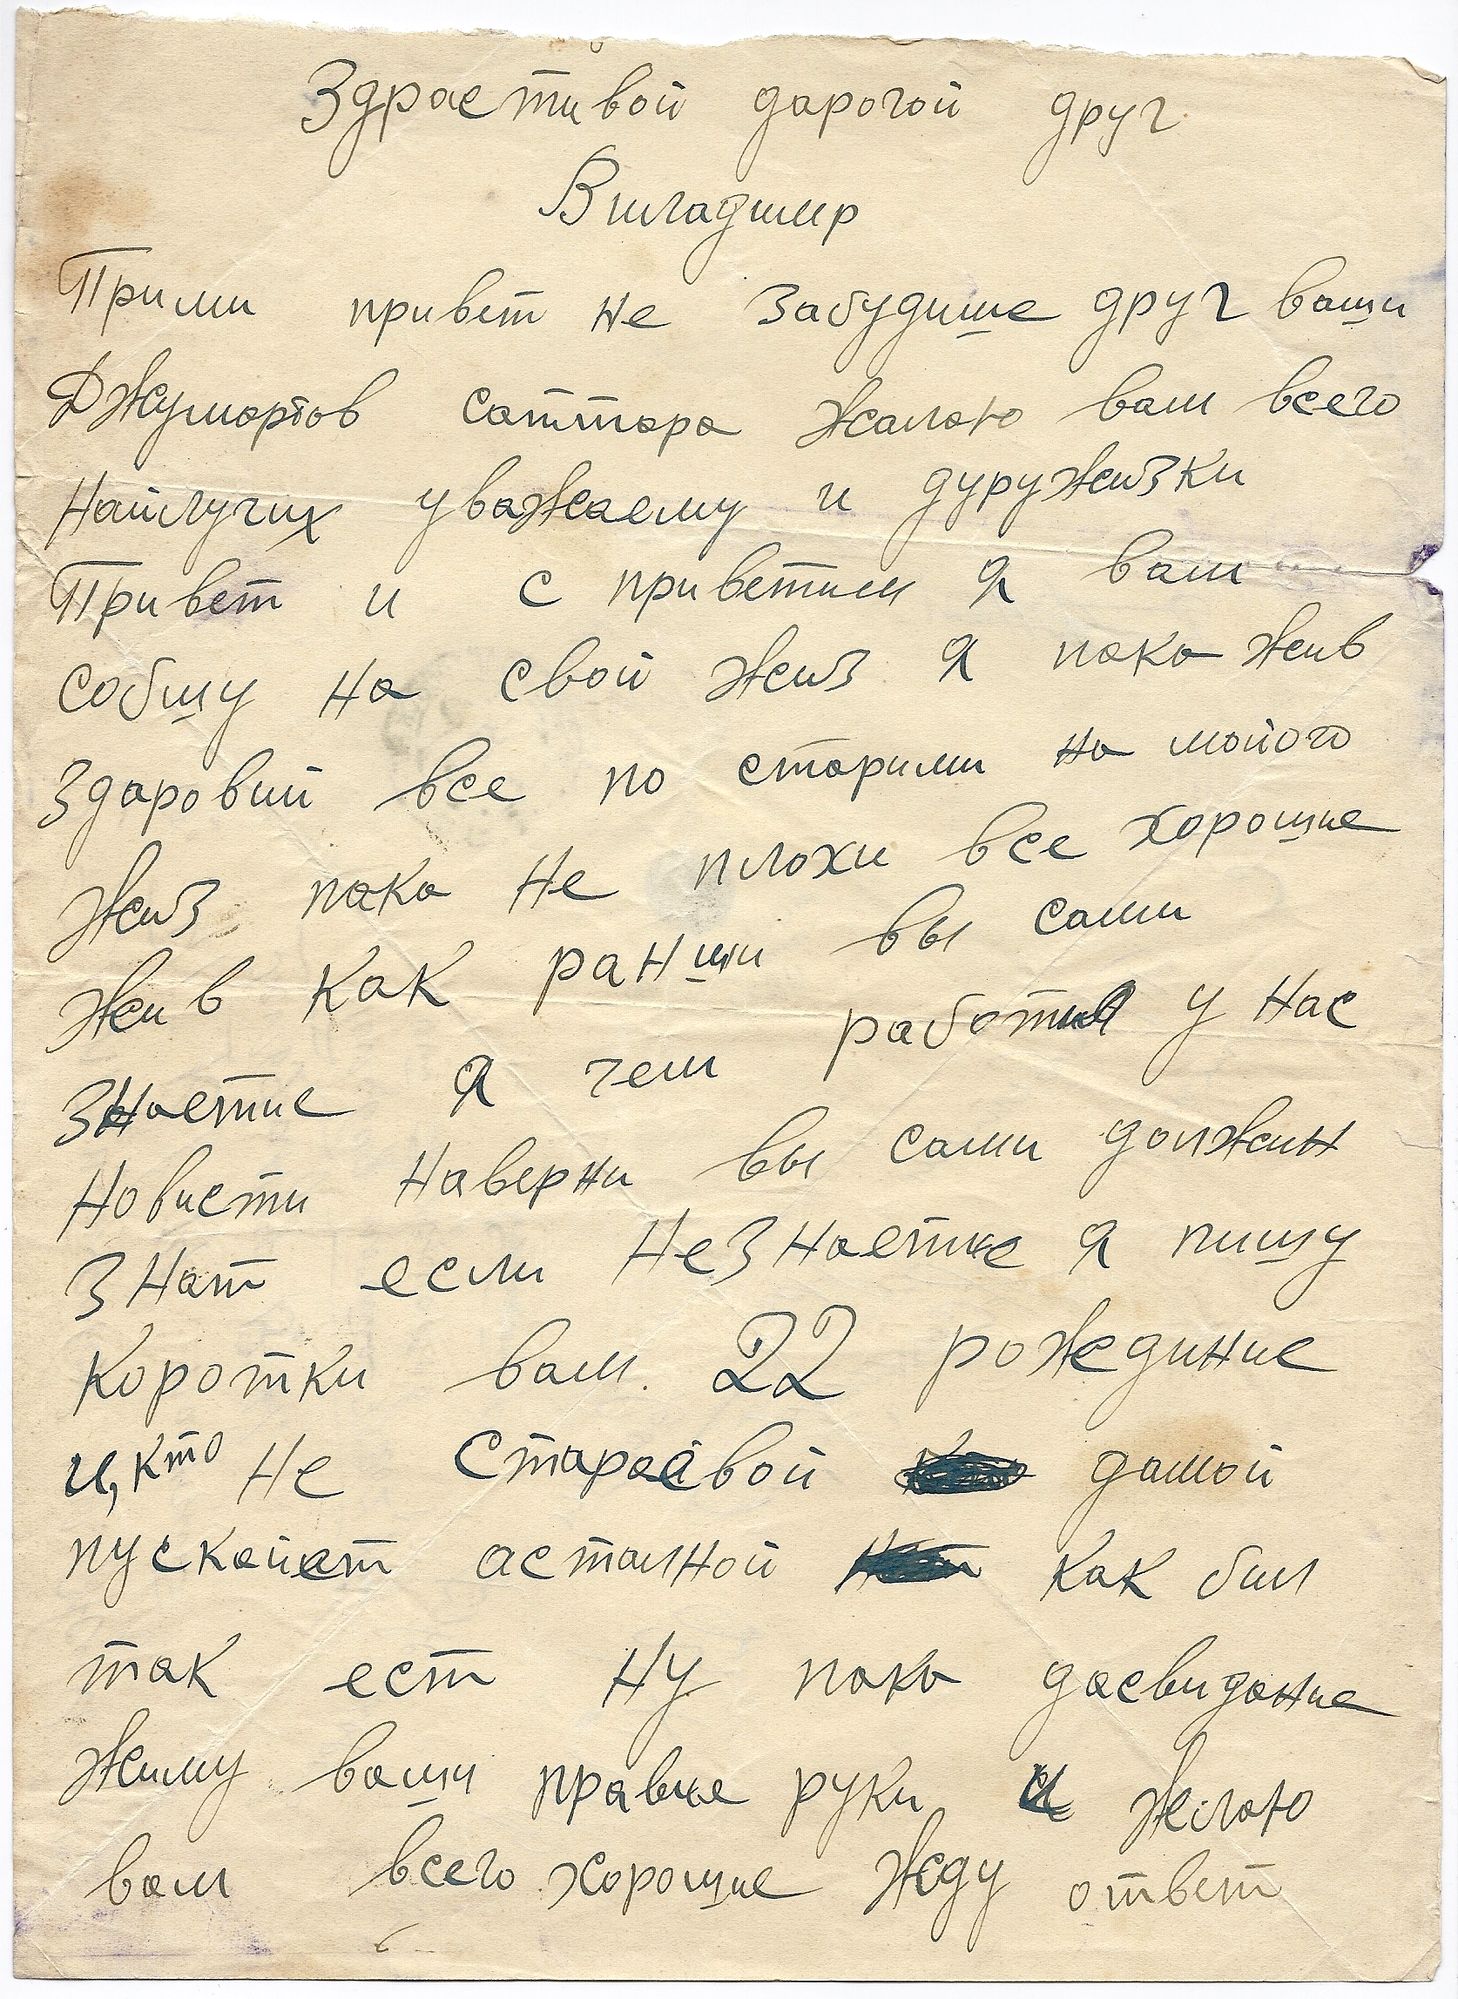 Здрастввой дарогой друг
Виладимир
Прими привет не забудише друг ваши
Джумартов саттара жалаю вам всего
Найлучих уважаему и дуружизки
Привет и с приветим я вам
собшу на свой жиз я пака жив
здаровий все по старими на мойого
жиз пака не плохи все хорошие
жив как ранши вы сами
знаетие я чем работия у нас
новисти наверни вы сами должин
знат если незнаетие я пишу
коротки вам. 22 рождиние
и, кто не старо свой домой
пускайет асталной как бил
так ест ну пака досвидание
жиму ваши правие руки и желаю
вам всего хорошие жду ответ